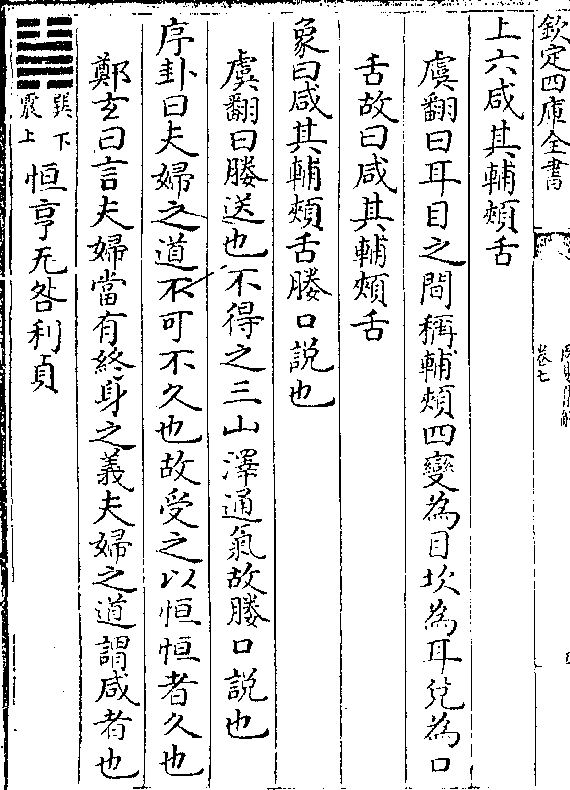 欽定四庫全書
卷七
上六咸其輔頰舌
虞翻曰耳目之間稱輔頰四變為目坎為耳兌為口
舌故曰咸其輔頰舌
象曰咸其輔頰舌媵口說也
虞翻曰媵送也不得之三山澤通氣故媵口說也
序卦曰夫婦之道不可不久也故受之以恒恒者久也
鄭玄曰言夫婦當有終身之義夫婦之道謂咸者也
巽下
震上
恒亨无咎利貞